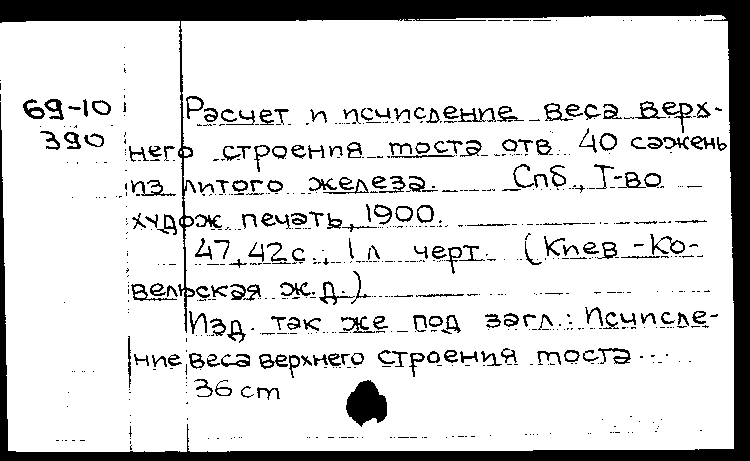 69-10
390
Расчет и исчисление веса верх-
него строения моста отв 40 сажень
из литого железа. Спб., Т-во
худож печать, 1900.
47, 42 с., 1 л черт. (Киев-Ко-
вельская ж.д.).
Изд. так же под загл.: Исчисле-
ние веса верхнего строения моста...
36 cm